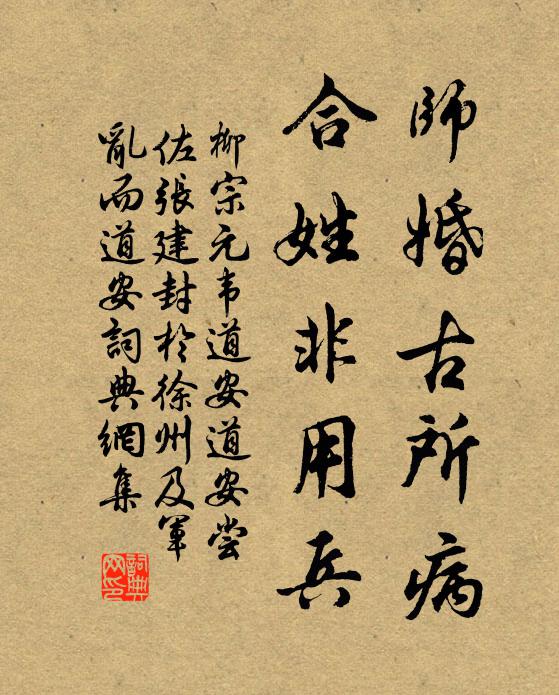 師婚古所病
合姓非用兵
柳宗元韦道安道安尝
佐張建封於徐州及軍
亂而道安詞典網集
詞典网印